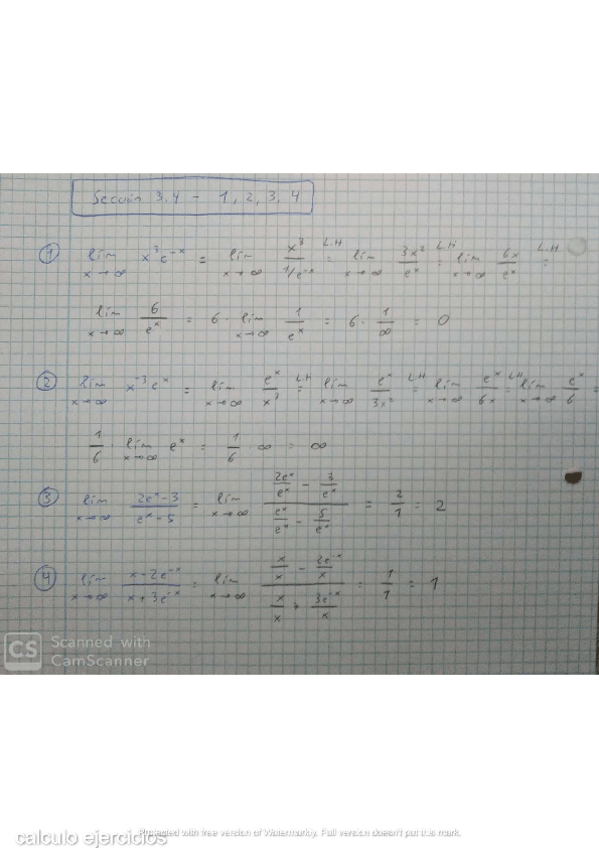 Sección 3.4 - 1, 2, 3, 4
① lim x→∞ x³e⁻ˣ = lim x→∞ x³/(1/e⁻ˣ) L.H = lim x→∞ 3x²/eˣ L.H = lim x→∞ 6x/eˣ L.H =
lim x→∞ 6/eˣ = 6 · lim x→∞ 1/eˣ = 6 · 1/∞ = 0
② lim x→∞ x⁻³eˣ = lim x→∞ eˣ/x³ = L.H lim x→∞ eˣ/3x² L.H = lim x→∞ eˣ/6x L.H = lim x→∞ eˣ/6 =
1/6 · lim x→∞ eˣ = 1/6 · ∞ = ∞
③ lim x→∞ (2eˣ-3)/(eˣ-5) = lim x→∞ (2eˣ/eˣ - 3/eˣ)/(eˣ/eˣ - 5/eˣ) = 2/1 = 2
④ lim x→∞ (x-2e⁻ˣ)/(x+3e⁻ˣ) = lim x→∞ (x/x - 2e⁻ˣ/x)/(x/x + 3e⁻ˣ/x) = 1/1 = 1
CS Scanned with
CamScanner
calculo ejercicios
Protected with free version of Watermarkly. Full version doesn't put this mark.